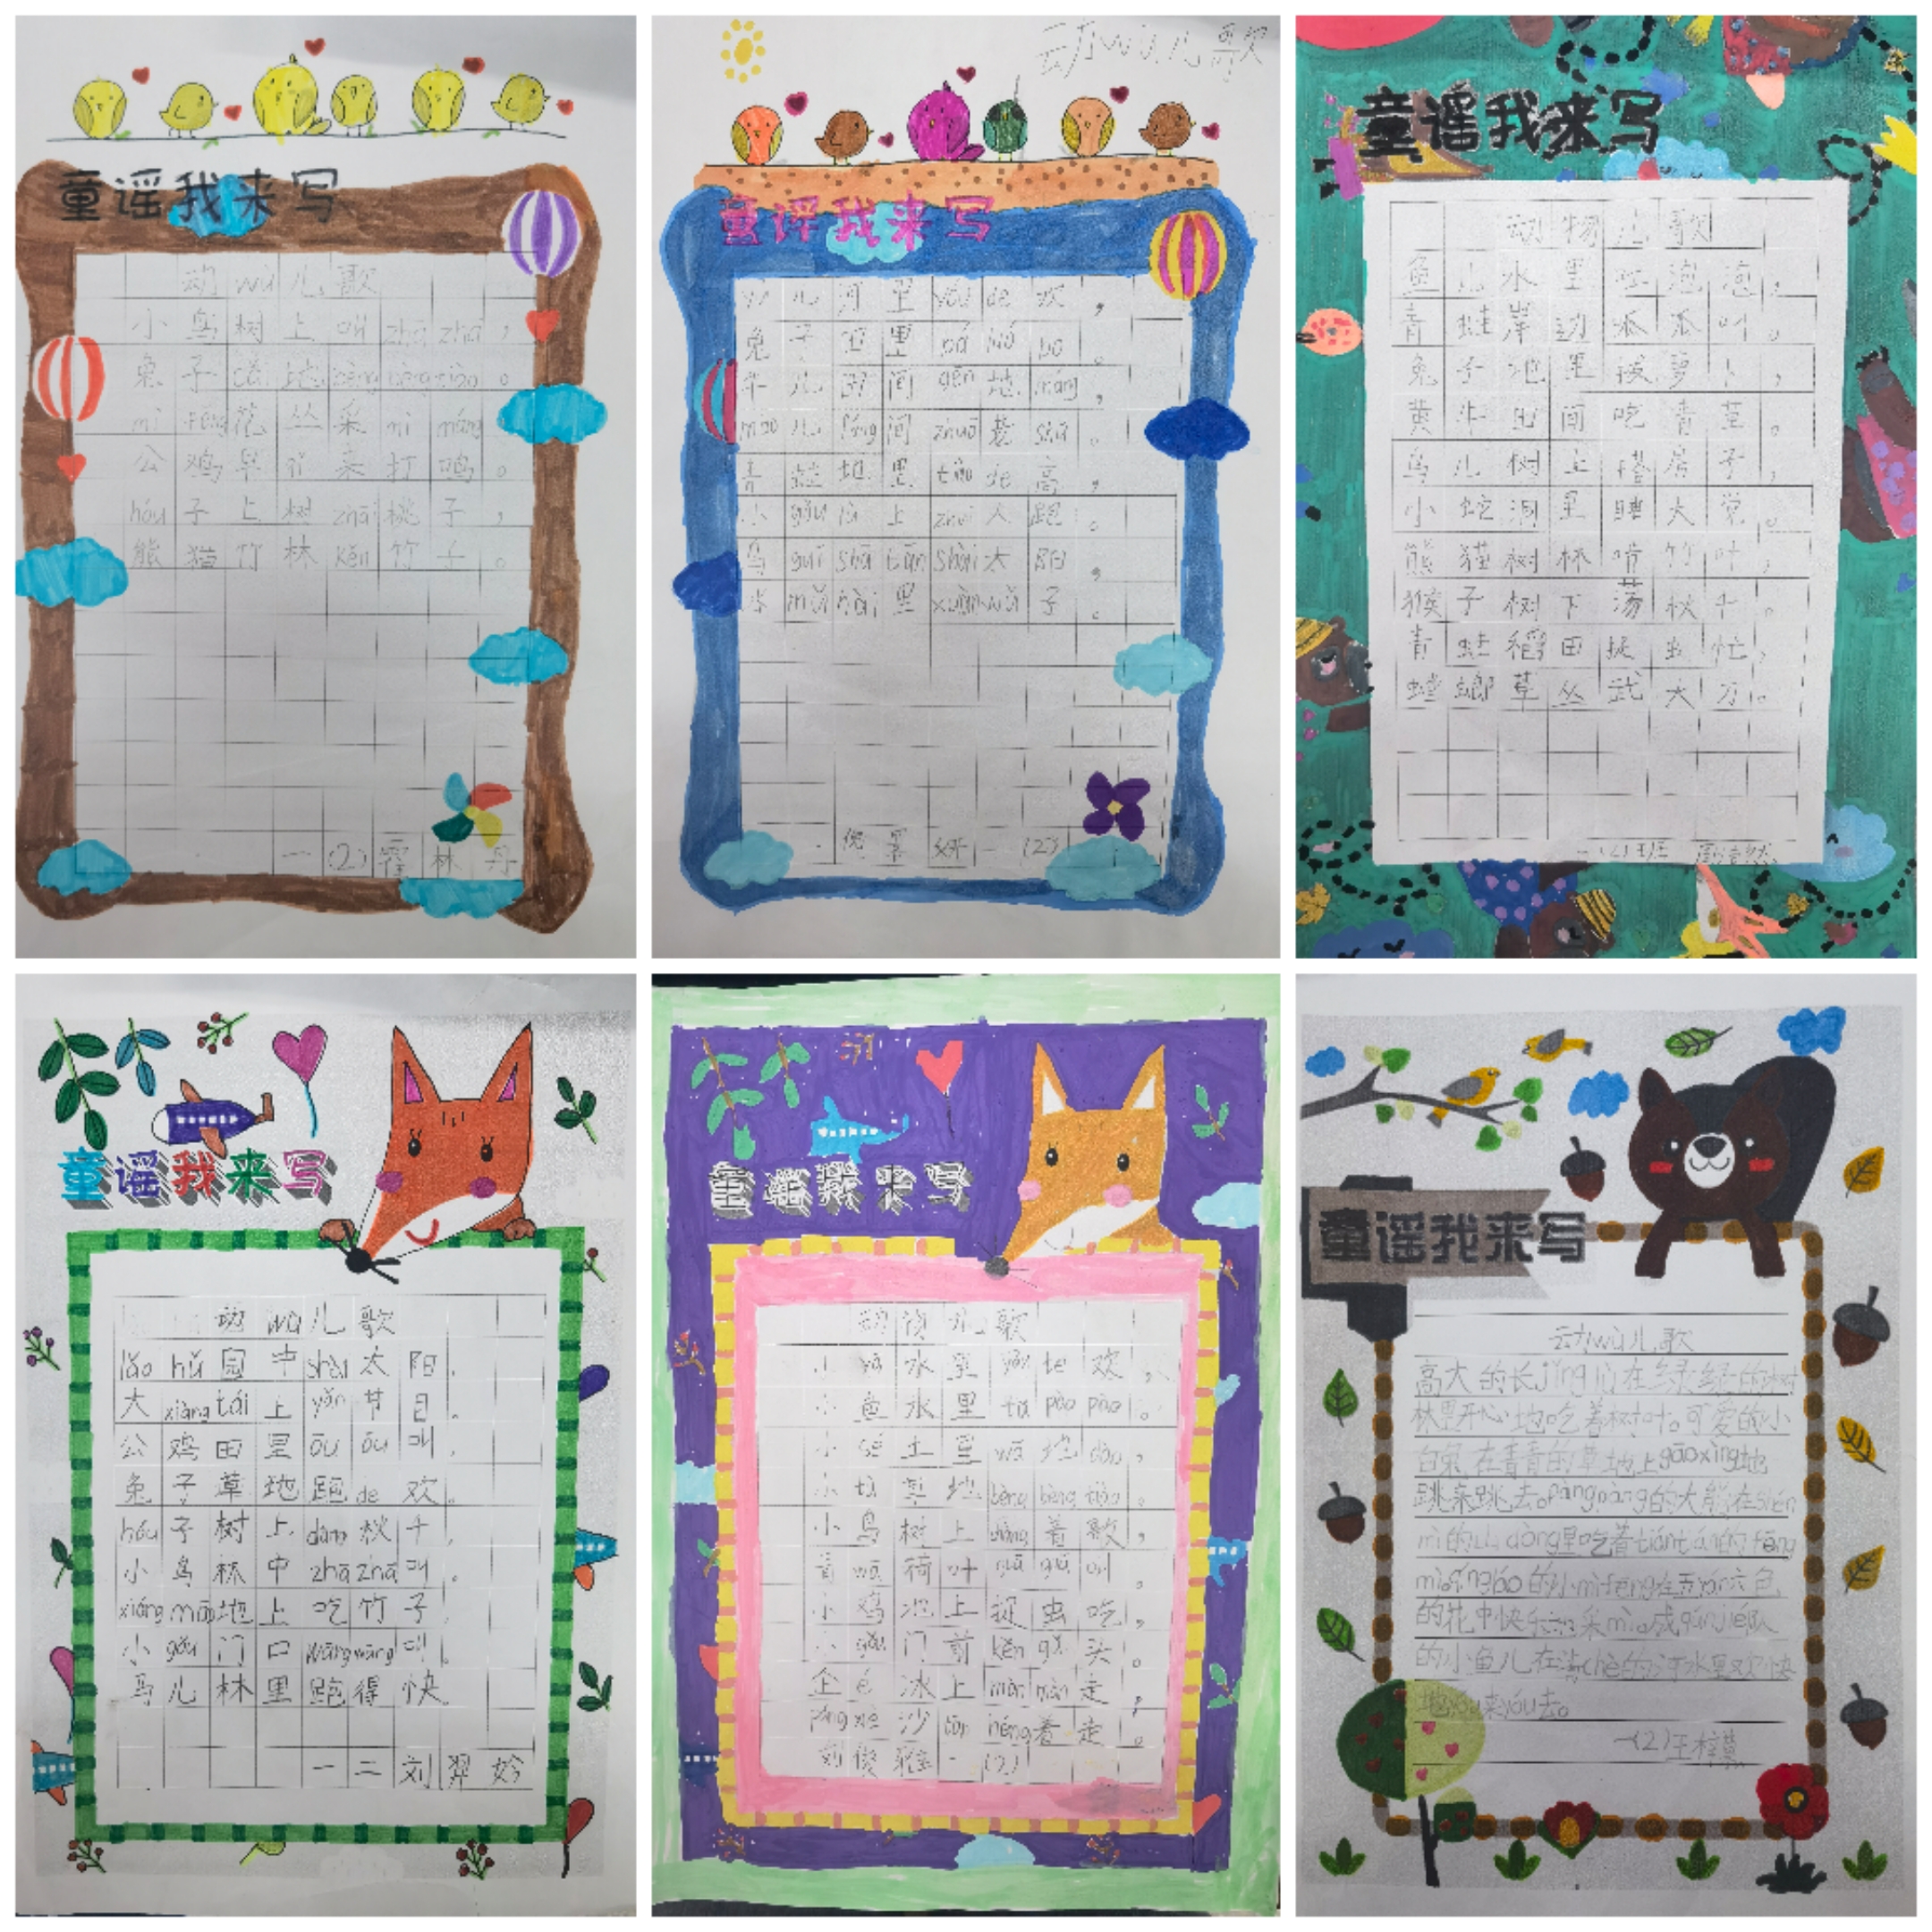 童谣我来写
动wù儿歌
小鸟树上叫zhā zhā，
兔子cǎi地bèng bèng tiào。
mì fēng花丛采mì máng
公鸡早早来打鸣。
hóu子上树zhāi桃子，
熊猫竹林kěn竹子。
一(2)林丹
动wù儿歌
童谣我来写
yú儿河里yóu de欢，
兔子田里bá luó bo。
牛儿田间gēng地máng，
māo儿fáng间zhuō老shǔ。
青蛙地里tiào de高，
小gǒu lù上zhuī人跑。
乌guī shā tān shài太阳，
水mǔ hǎi里
子。
一(2)
童谣我来写
动物儿歌
鱼儿水里吐泡泡，
青蛙岸边呱呱叫。
兔子地里拔萝卜，
黄牛田间吃青草。
鸟儿树上搭房子，
小蛇洞里睡大觉。
熊猫树林啃竹叶，
猴子树下荡秋千。
青蛙稻田捉虫忙，
螳螂草丛武大刀。
一(2)班
童谣我来写
动wù儿歌
lǎo hǔ园中shài太阳，
大xiàng tái上yǎn节目。
公鸡田里ōu ōu叫，
兔子草地跑de欢。
hóu子树上dàng秋千，
小鸟林中zhā zhā叫。
xióng māo地上吃竹子，
小gǒu门口wāng wāng叫。
马儿林里跑得快。
一二刘羿妗
童谣我来写
动物儿歌
小yā水里yóu te欢，
小鱼水里tǔ pào pào。
小sé土里wā地dòng，
小tù草地bèng bèng tiào。
小鸟树上chàng着歌，
青wā荷叶guā guā叫。
小鸡池上捉虫吃，
小gǒu门前kěn gǔ头。
企é冰上màn màn走，
páng xiè沙tān héng着走。
刘俊雅一(2)
童谣我来写
动wù儿歌
高大的长jǐng lù在绿绿的树
林里开心地吃着树叶。可爱的小
白兔在青青的草地上gāo xìng地
跳来跳去。pàng pàng的大熊在shén
mì的shù dòng里吃着tián tián的fēng
mì。qín láo的小mì fēng在五yán六色
的花中快乐地采mì。成qún jié队
的小鱼儿在清chè的河水里欢快
地yóu来yóu去。
一(2)王梓